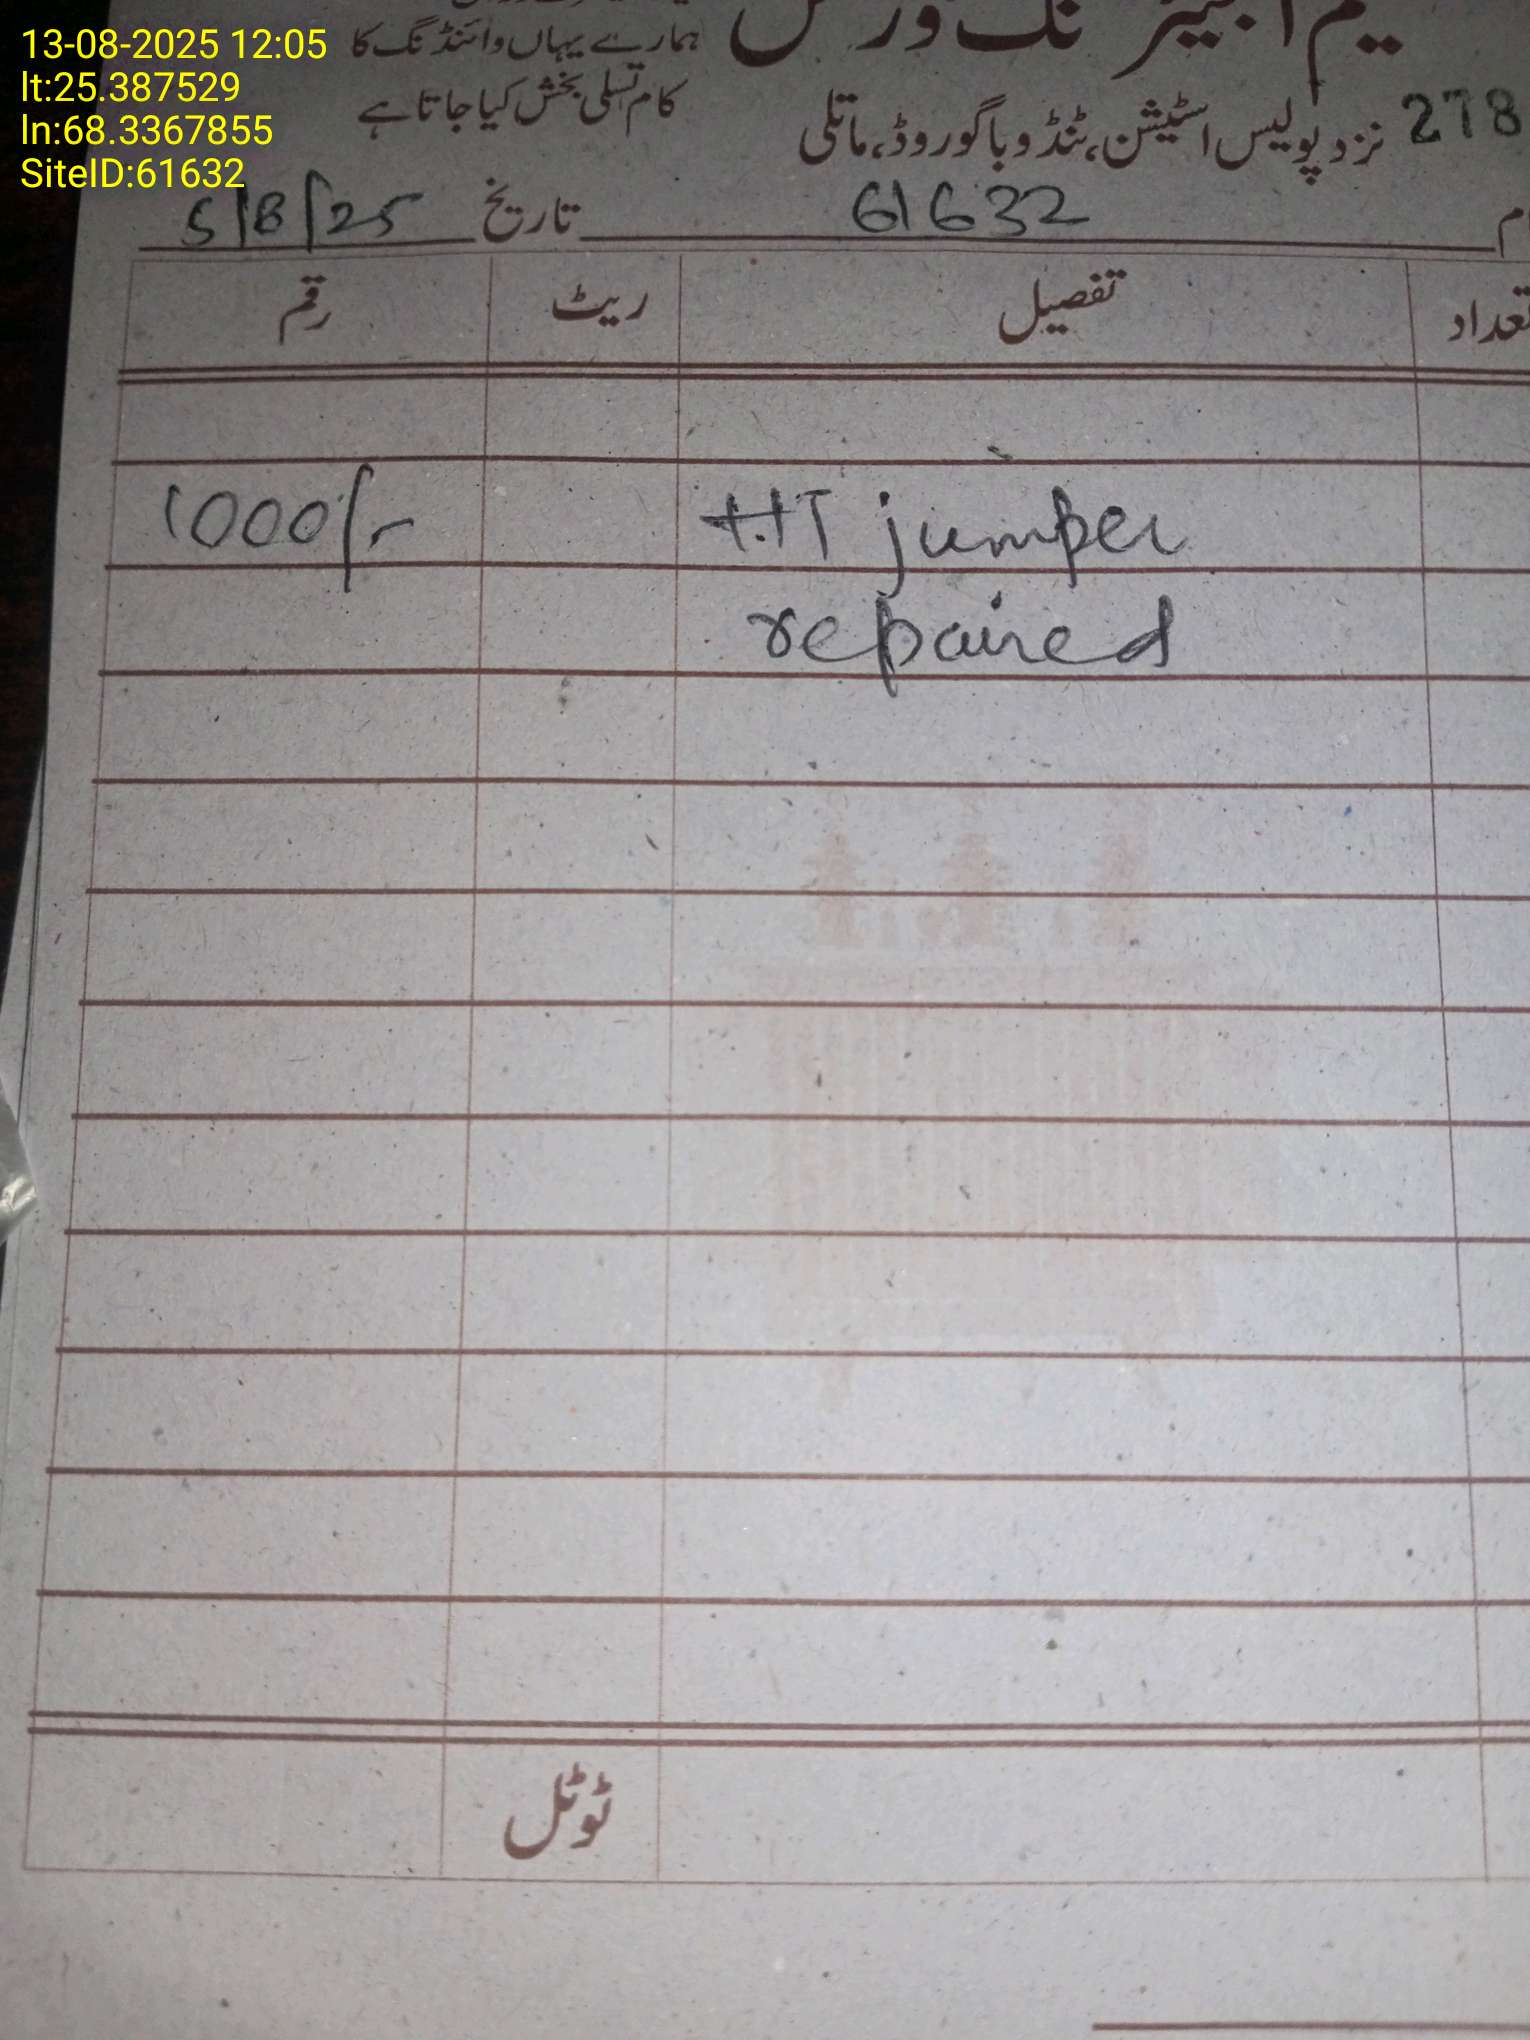 13-08-2025 12:05
lt:25.387529
ln:68.3367855
SiteID:61632
ہمارے یہاں وائنڈنگ کا
کام تسلی بخش کیا جاتا ہے
نزد پولیس اسٹیشن، ٹنڈو باگو روڈ، ماتلی
278
61632 تاریخ 5/8/25
تعداد تفصیل ریٹ رقم
HT jumper 1000/-
repaired
ٹوٹل